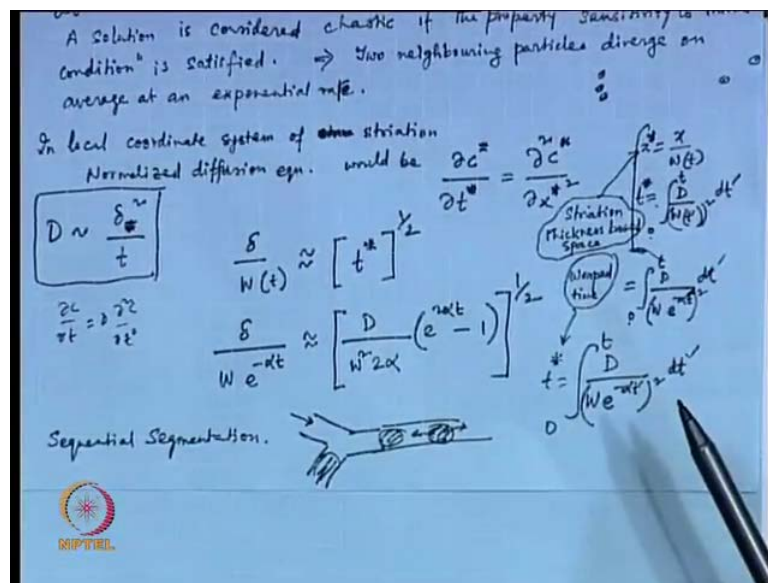 A solution is considered chaotic if the property "sensitivity to
condition" is satisfied. ⇒ Two neighbouring particles diverge on
average at an exponential rate.
In local coordinate system of striation
Normalized diffusion eqn. would be ∂c*/∂t* = ∂²c*/∂x*²
x* = x/W(t)
t* = ∫₀ᵗ D/(W(t'))² dt'
Striation
thickness based
space
D ~ δ²/t
δ/W(t) ≈ [t*]^1/2
Warped
time
= ∫₀ᵗ D/(W e^-αt')² dt'
∂c/∂t = D
δ/(W e^-αt) ≈ [D/(W² 2α) (e^2αt - 1)]^1/2
t* = ∫₀ᵗ D/(W e^-αt')² dt'
Sequential Segmentation.
NPTEL